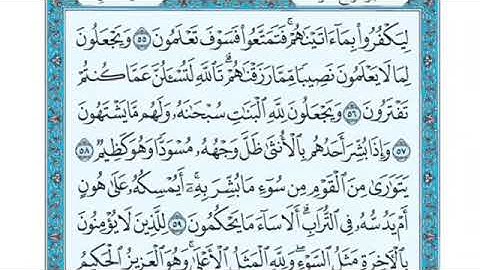 لِيَكْفُرُوا۟ بِمَآ ءَاتَيْنَٰهُمْ ۚ فَتَمَتَّعُوا۟ ۖ فَسَوْفَ تَعْلَمُونَ ٥٥ وَيَجْعَلُونَ
لِمَا لَا يَعْلَمُونَ نَصِيبًا مِّمَّا رَزَقْنَٰهُمْ ۗ تَٱللَّهِ لَتُسْـَٔلُنَّ عَمَّا كُنتُمْ
تَفْتَرُونَ ٥٦ وَيَجْعَلُونَ لِلَّهِ ٱلْبَنَٰتِ سُبْحَٰنَهُۥ ۙ وَلَهُم مَّا يَشْتَهُونَ
٥٧ وَإِذَا بُشِّرَ أَحَدُهُم بِٱلْأُنثَىٰ ظَلَّ وَجْهُهُۥ مُسْوَدًّا وَهُوَ كَظِيمٌ ٥٨
يَتَوَٰرَىٰ مِنَ ٱلْقَوْمِ مِن سُوٓءِ مَا بُشِّرَ بِهِۦٓ ۚ أَيُمْسِكُهُۥ عَلَىٰ هُونٍ
أَمْ يَدُسُّهُۥ فِى ٱلتُّرَابِ ۗ أَلَا سَآءَ مَا يَحْكُمُونَ ٥٩ لِلَّذِينَ لَا يُؤْمِنُونَ
بِٱلْءَاخِرَةِ مَثَلُ ٱلسَّوْءِ ۖ وَلِلَّهِ ٱلْمَثَلُ ٱلْأَعْلَىٰ ۚ وَهُوَ ٱلْعَزِيزُ ٱلْحَكِيمُ